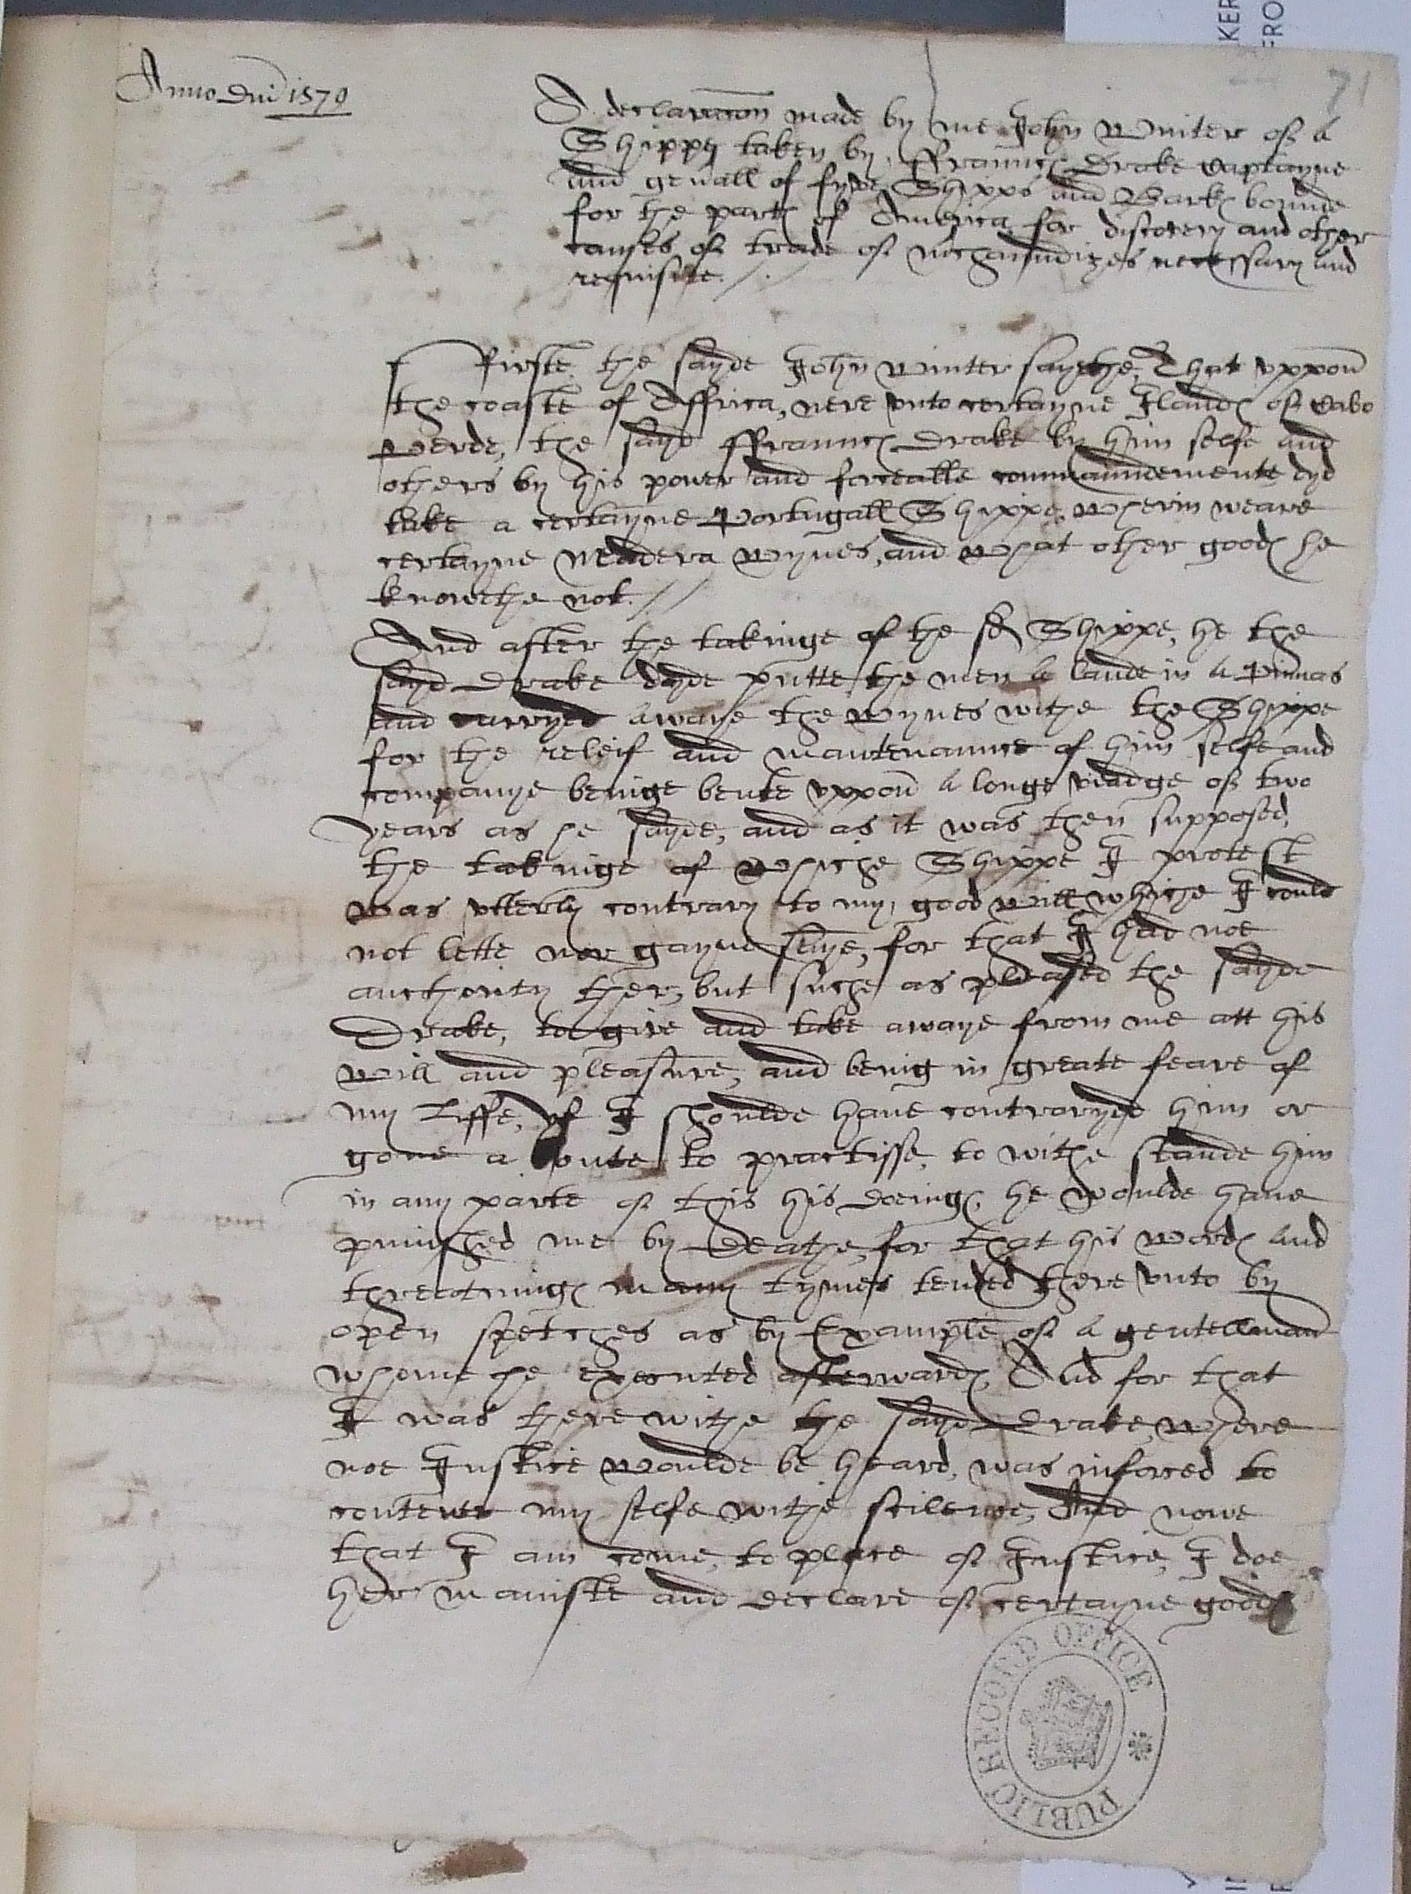 71
Anno Dni 1579
A declaracon made by me John Winter of a
Shippe taken by ffraunc Drake Captayne
and genall of fyve Shipps and Barks bounde
for the parts of America for discovery and other
causes of trade of mchaundizes necessary and
requisite.//
Firste the sayde John Winter saythe, That uppon
the coaste of Affrica, nere unto certayne Ilands of Cabo
Verde, the sayd ffraunc Drake by him selfe and
others by his power and forceable commaundemente dyd
take a certayne Portugall Shippe, wherin weare
certayne Madera Wynes, and what other goods he
knowethe not.//
And after the takinge of the sd Shippe, he the
sayd Drake dyde putte the men a lande in a Pinnas
and carryed awaye the Wynes withe the Shippe
for the releif and mantenaunce of him selfe and
companye beinge bente uppon a longe viadge of two
years as he sayde, and as it was then supposed,
the takinge of whiche Shippe I protest
was utterly contrary to my good will whiche I could
not lette nor gayne saye, for that I had noe
aucthority ther, but suche as pleased the sayde
Drake, to give and take awaye from me att his
will and pleasure, and being in greate feare of
my liffe, yf I shoulde have contraryed him or
gone a boute to practisse, to withe stande him
in any parte of this his doeings, he woulde have
punished me by Deathe, for that his words and
threatnings many tymes tended there unto by
open spetches as by Example of a gentellman
whome he executed afterwards, And for that
I was there withe the sayd Drake, where
noe Justice woulde be heard, was inforced to
contente my selfe withe scilence, And nowe
that I am come, to place of Justice, I doe
her maniste and declare of certayne goods
PUBLIC RECORD OFFICE